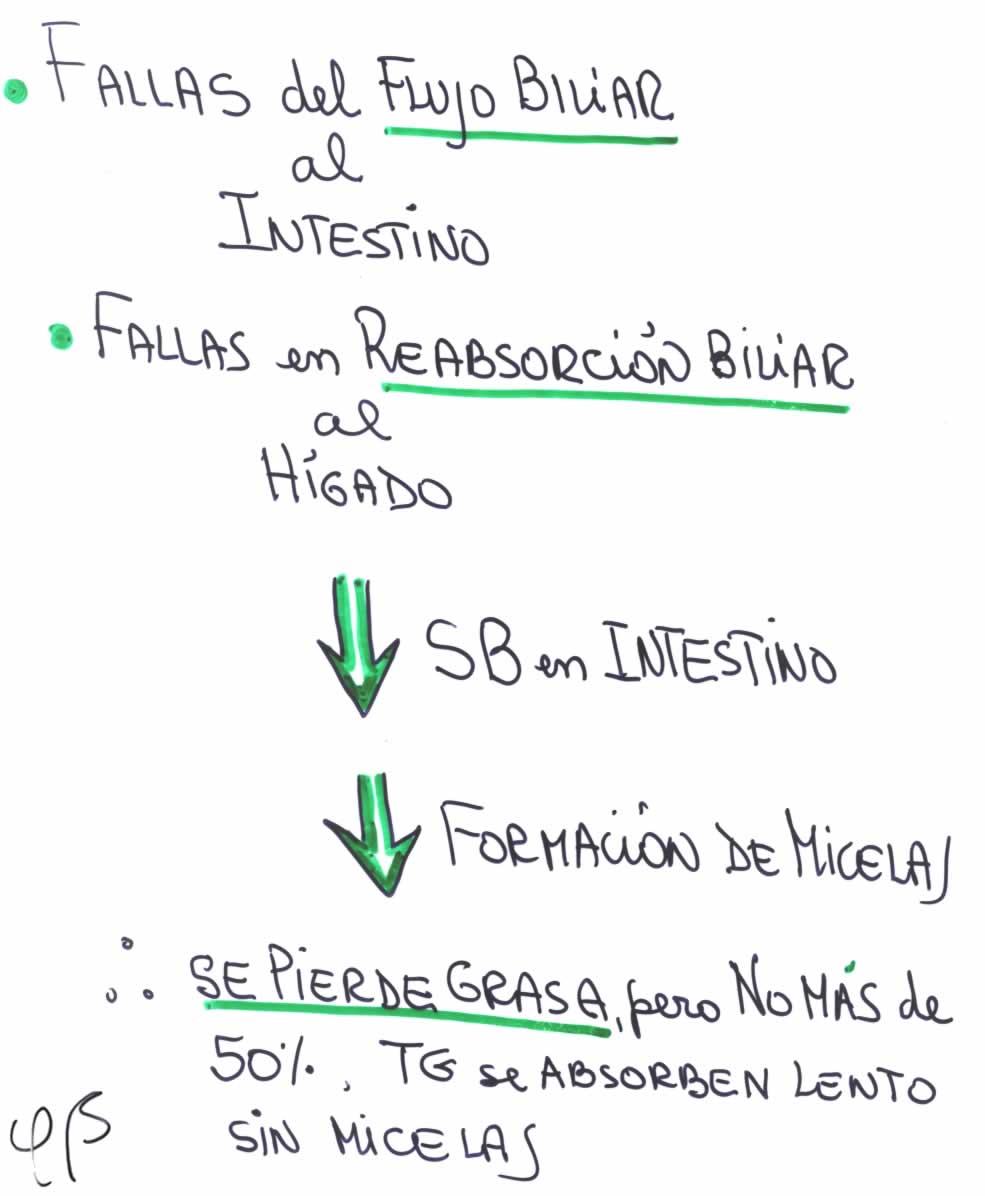 • FALLAS del FLUJO BILIAR
al
INTESTINO
• FALLAS en REABSORCIÓN BILIAR
al
HÍGADO
↓ SB en INTESTINO
↓ FORMACIÓN DE MICELAS
∴ SE PIERDE GRASA, pero NO MÁS de
50%. TG se ABSORBEN LENTO
SIN MICELAS